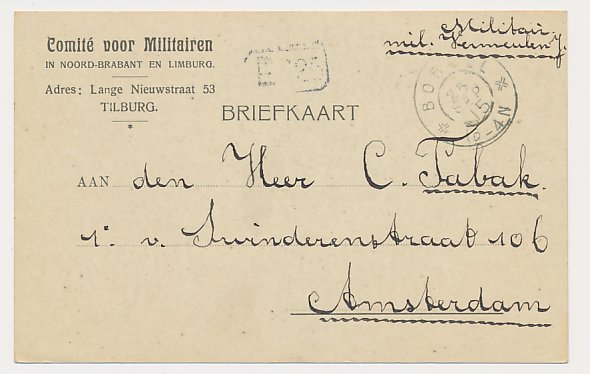 Comité voor Militairen
IN NOORD-BRABANT EN LIMBURG.
Adres: Lange Nieuwstraat 53
TILBURG.
*
Militair
mil. Vermeulen J.
BRIEFKAART
AAN den Heer C. Tabak.
1e v. Swinderenstraat 106
Amsterdam